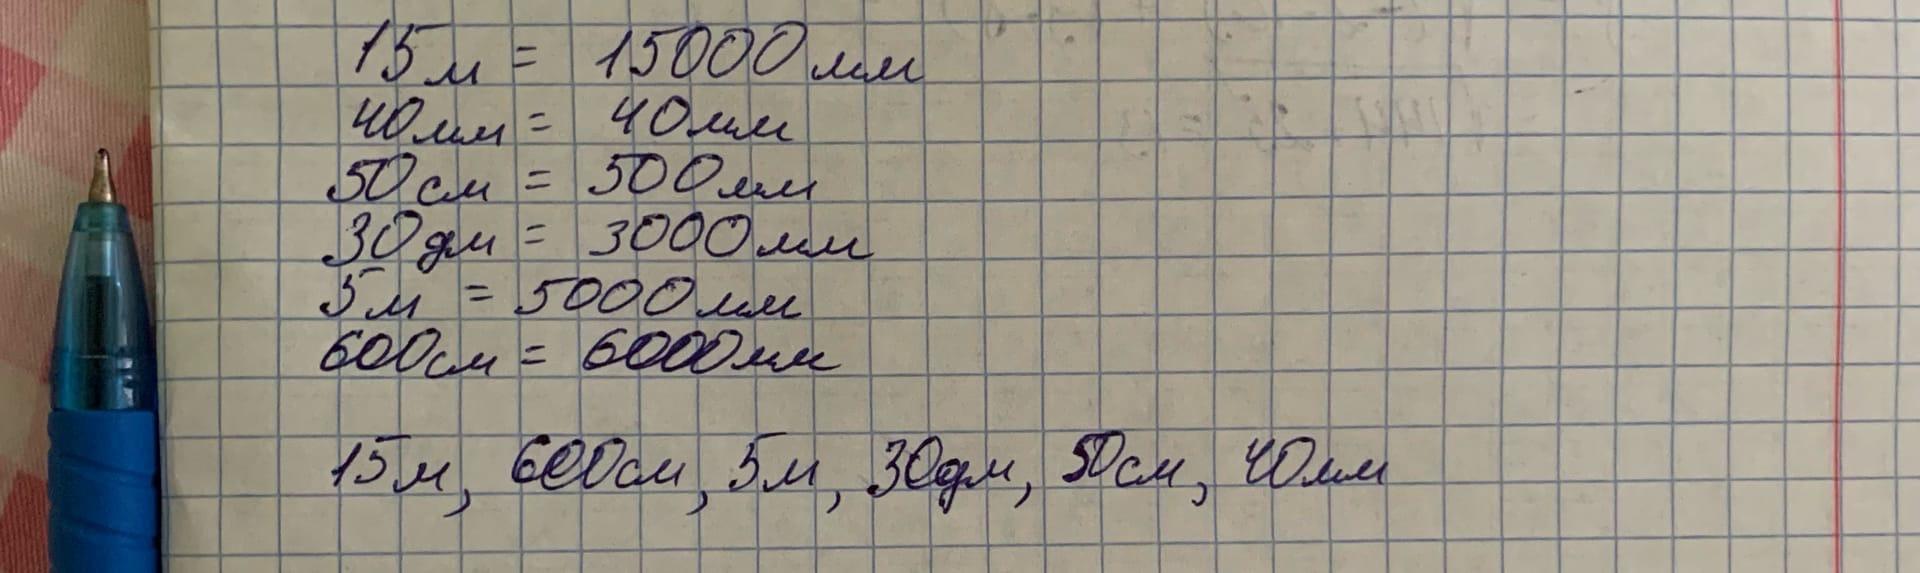 15м = 15000мм
40мм = 40мм
50см = 500мм
30дм = 3000мм
5м = 5000мм
600см = 6000мм
15м, 600см, 5м, 30дм, 50см, 40мм